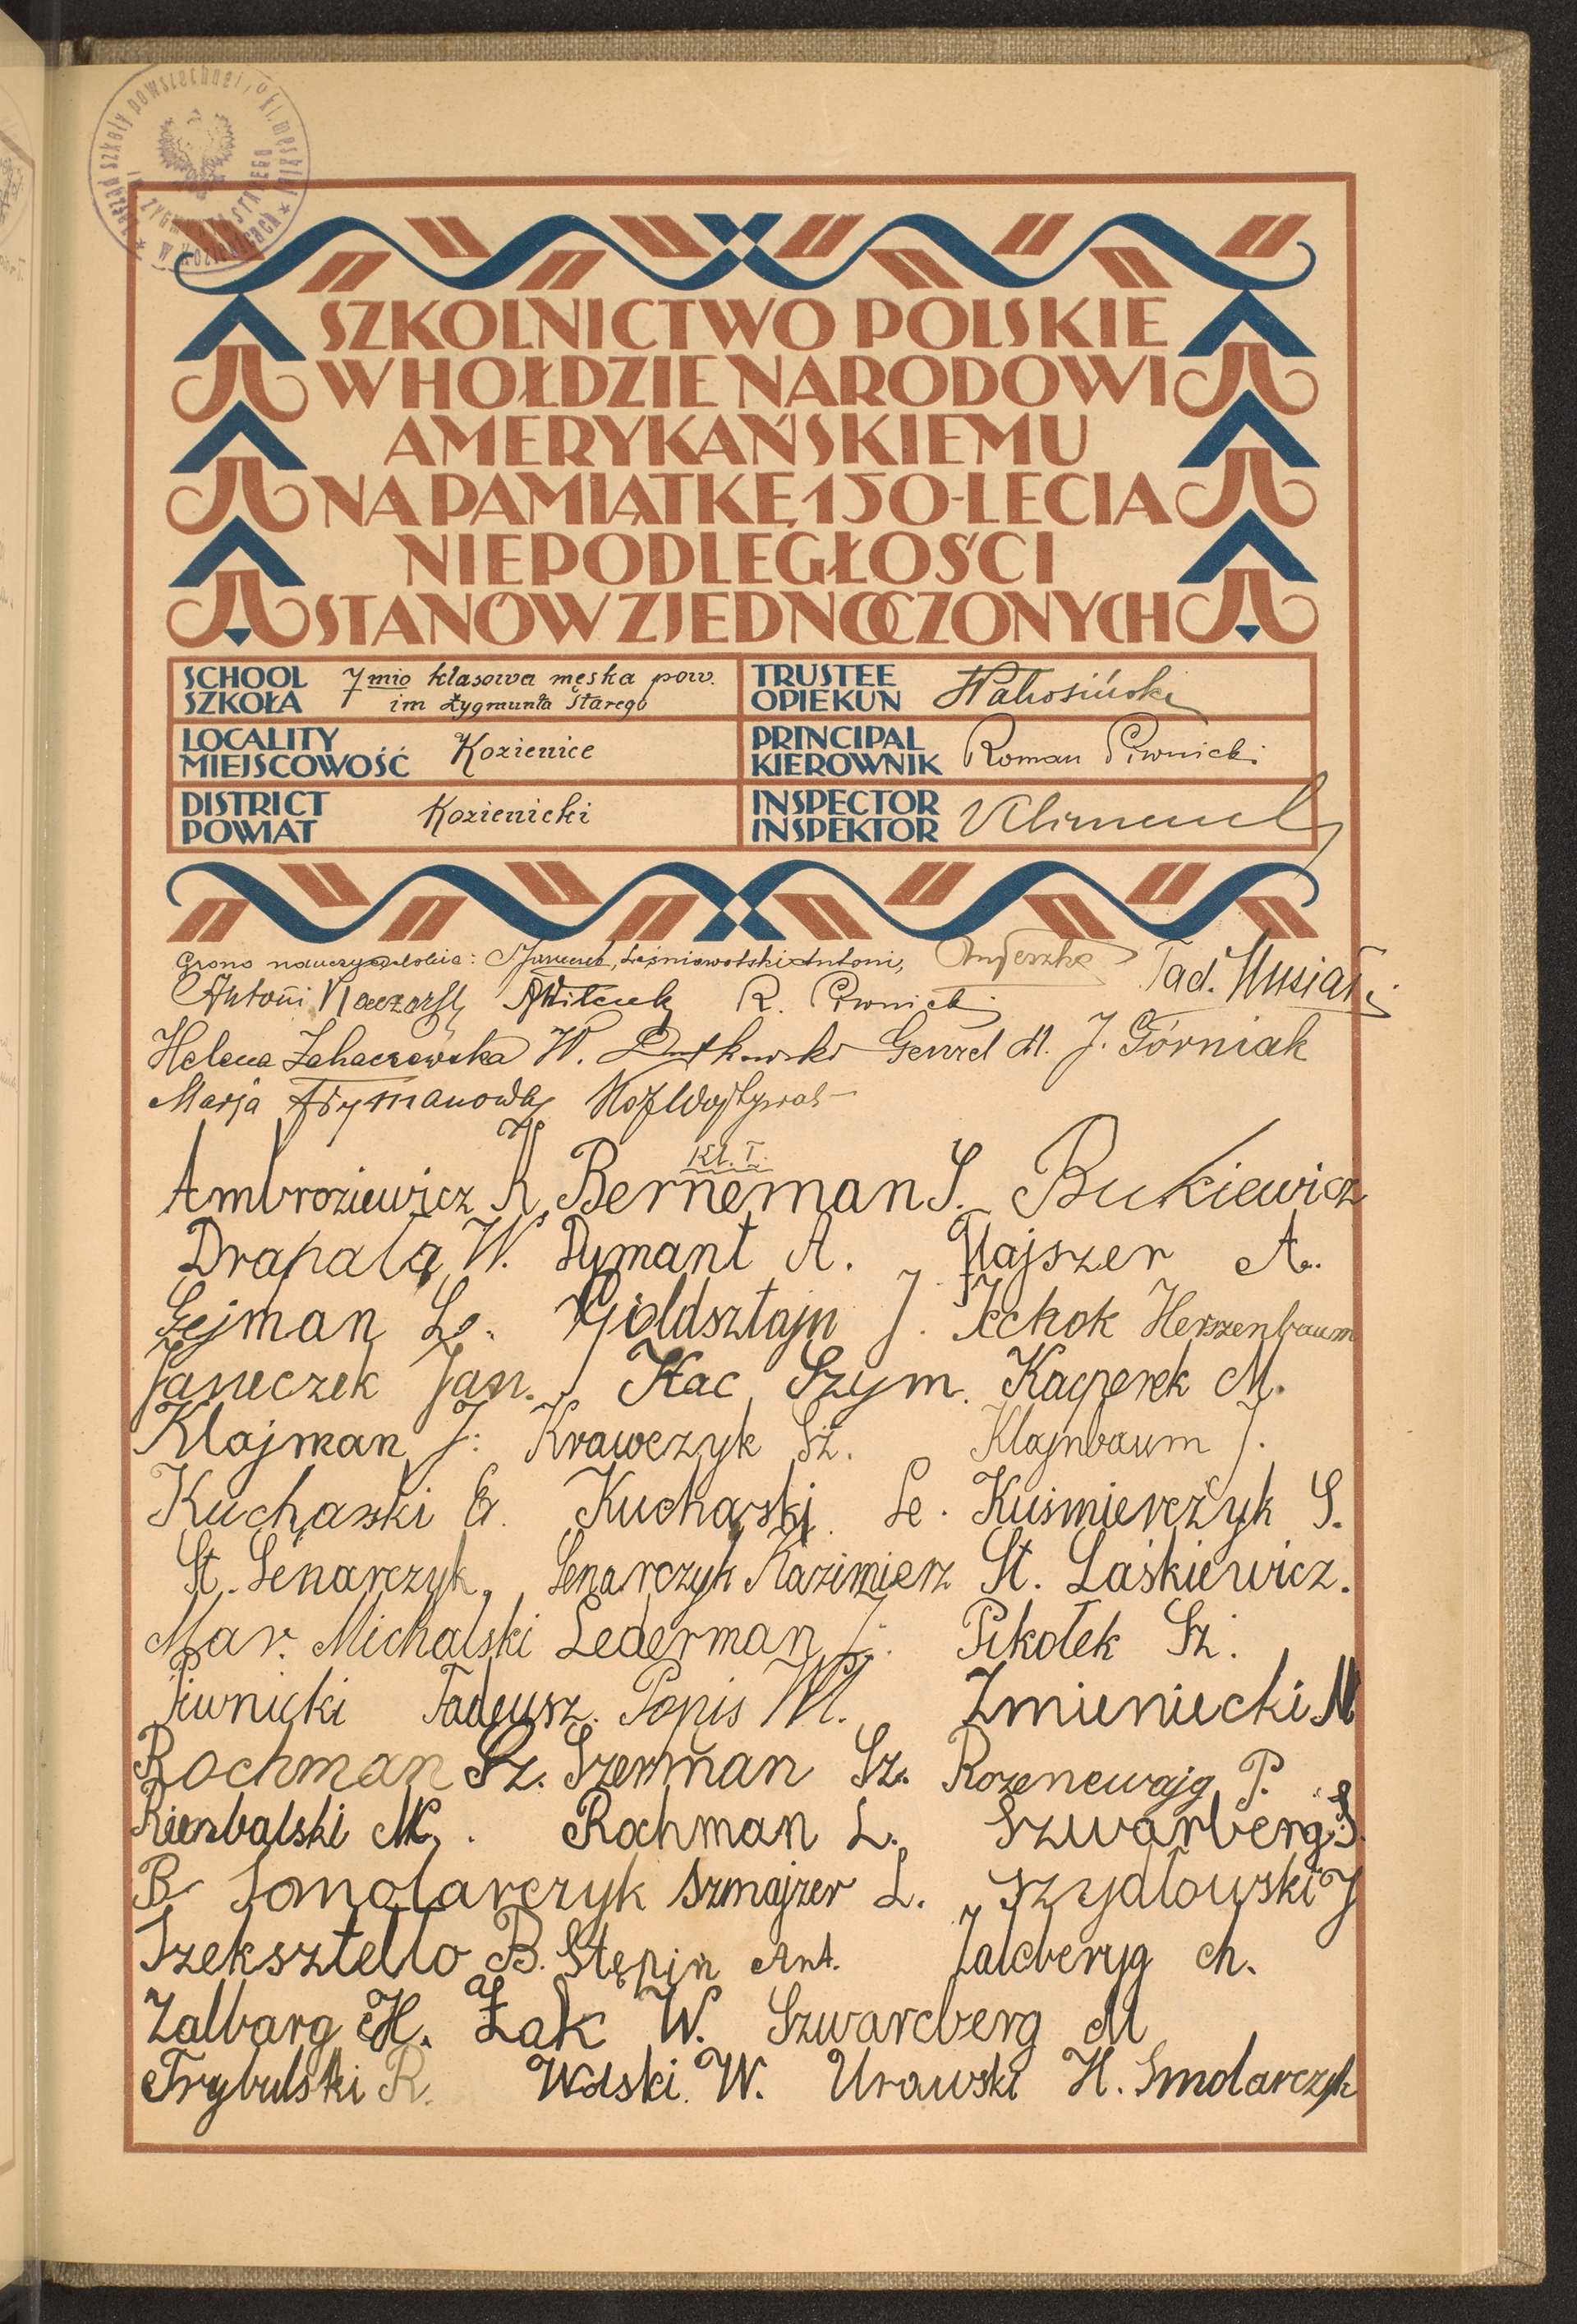 Zarząd szkoły powszechnej 7o kl. męskiej
im ZYGMUNTA STAREGO
w Kozienicach
SZKOLNICTWO POLSKIE
W HOŁDZIE NARODOWI
AMERYKAŃSKIEMU
NA PAMIĄTKĘ 150-LECIA
NIEPODLEGŁOŚCI
STANÓW ZJEDNOCZONYCH
SCHOOL SZKOŁA 7mio klasowa męska pow.
im Zygmunta Starego
TRUSTEE OPIEKUN
LOCALITY MIEJSCOWOŚĆ Kozienice
PRINCIPAL KIEROWNIK Roman Piwnicki
DISTRICT POWIAT Kozienicki
INSPECTOR INSPEKTOR
Grono nauczycielskie: Leśniewolski Antoni, Tad. Musiał
Antoni R. Piwnicki
Helena W. Dutkowski Genzel M. J. Górniak
Marja
Kl. I.
Ambroziewicz K. Berneman S. Bukiewicz
Drapała W. Dymant A. Flajszer A.
Gejman L. Goldsztajn J. Icchok Herszenbaum
Janeczek Jan. Kac Szym. Kacperek M.
Klajman J. Krawczyk Sz. Klajnbaum J.
Kucharski E. Kucharski Le. Kuśmierczyk S.
St. Lenarczyk. Lenarczyk Kazimierz St. Laśkiewicz.
Mar. Michalski Lederman J. Pikołek Sz.
Piwnicki Tadeusz. Popis Wł. Zmieniecki M
Rochman Sz. Szerman Sz. Rozenewajg P.
M. Rochman L. Szwarberg S.
B Somolarczyk Szmajzer L. Szydłowski J
Szeksztello B. Stępin Ant. Zalcberyg Ch.
Zalbarg H. Żak W. Szwarcberg M
Trybulski R. Wolski W. Urawski H. Smolarczyk